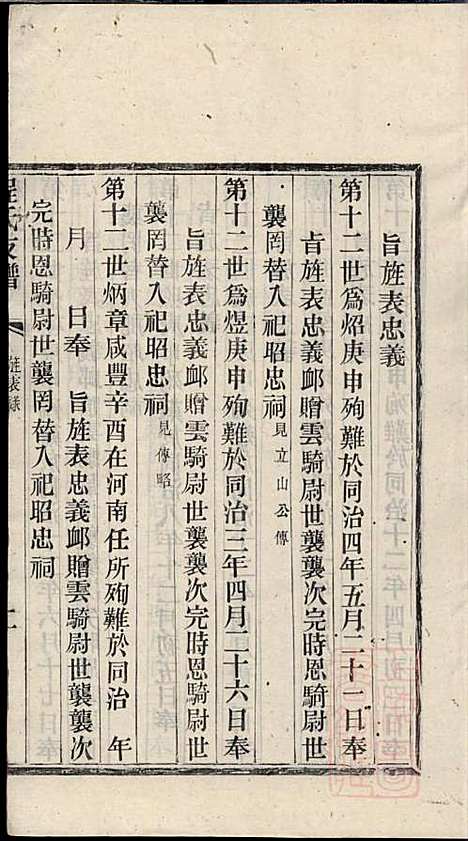 旨旌表忠義
第十二世爲炤庚申殉難於同治四年五月二十一日奉
旨旌表忠義邺贈雲騎尉世襲襲次完時恩騎尉世
襲罔替入祀昭忠祠見立山公傳
第十二世爲煜庚申殉難於同治三年四月二十六日奉
旨旌表忠義邺贈雲騎尉世襲襲次完時恩騎尉世
襲罔替入祀昭忠祠見傳略
第十二世炳章咸豐辛酉在河南任所殉難於同治 年
月 日奉 旨旌表忠義邺贈雲騎尉世襲襲次
完時恩騎尉世襲罔替入祀昭忠祠
程氏支譜 旌表錄